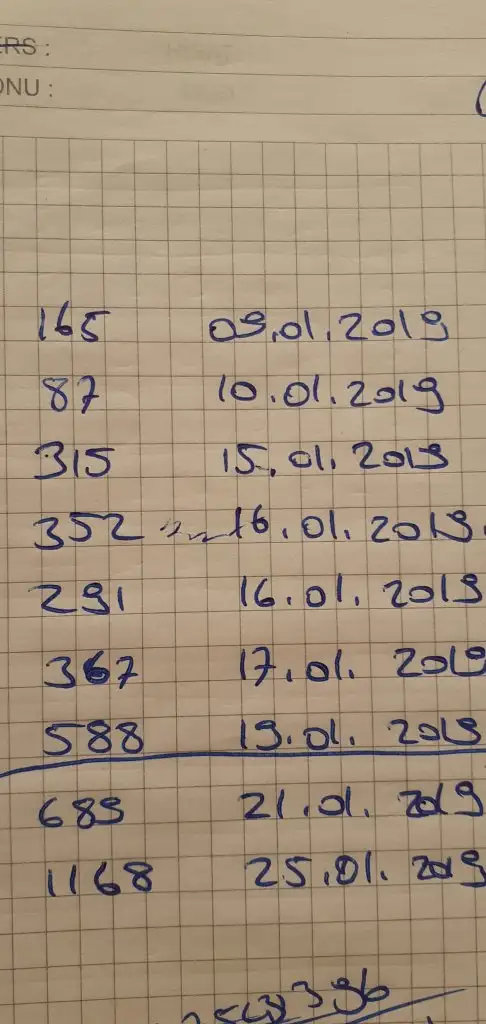 ERS :
ONU :
165 09.01.2019
87 10.01.2019
315 15.01.2019
352 16.01.2019.
291 16.01.2019
367 17.01.2019
588 19.01.2019
689 21.01.2019
1168 25.01.2019
396